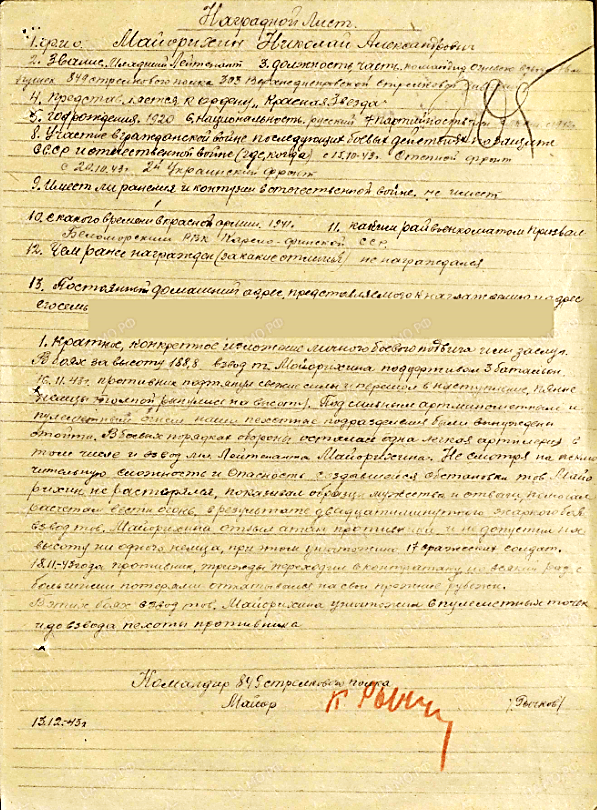 Наградной Лист.
1. Ф.И.О. Майорихин Николай Александрович
2. Звание. Младший Лейтенант 3. должность, часть. командир огневого взвода
пушек 849 стрелкового полка 303 Верхнеднепровской стрелковой дивизии
4. Представляется к ордену „Красная Звезда"
5. Год рождения. 1920 6. Национальность. русский 7. Партийность
8. Участие в гражданской войне последующих боевых действиях по защите
СССР и отечественной войне (где, когда) с 15.10.43г. Степной фронт
с 20.10.43г. 2й Украинский фронт
9. Имеет ли ранения и контузии в отечественной войне. не имеет
10. С какого времени в красной армии. 1941. 11. каким райвоенкоматом призван
Беломорским РВК Карело-финской ССР
12. Чем ранее награжден (за какие отличия) не награждался
13. Постоянный домашний адрес, представляемого к награждению и адрес
его семьи
1. Краткое, конкретное изложение личного боевого подвига или заслуг.
В боях за высоту 188,8 взвод т. Майорихина поддерживал 3 батальон.
16.11.43г. противник подтянув свежие силы и перешел в наступление, пьяные
немцы толпой ринулись на высоту. Под сильным артминометным и
пулеметным огнем наши пехотные подразделения были вынуждены
отойти. В боевых порядках обороны осталась одна легкая артиллерия в
том числе и взвод мл. Лейтенанта Майорихина. Не смотря на исклю-
чительную сложность и опасность создавшейся обстановки тов. Майо-
рихин не растерялся, показывал образцы мужества и отваги, помогал
расчетам вести огонь, в результате двадцатиминутного жаркого боя
взвод тов. Майорихина отбил атаки противника и не допустил на
высоту ни одного немца, при этом уничтожено 17 вражеских солдат.
18.11.43 года противник трижды переходил в контратаку, но всякий раз с
большими потерями откатывался на свои прежние рубежи.
В этих боях взвод тов. Майорихина уничтожил 6 пулеметных точек
и до взвода пехоты противника
Командир 849 стрелкового полка
Майор /Рычков/
13.12.43г